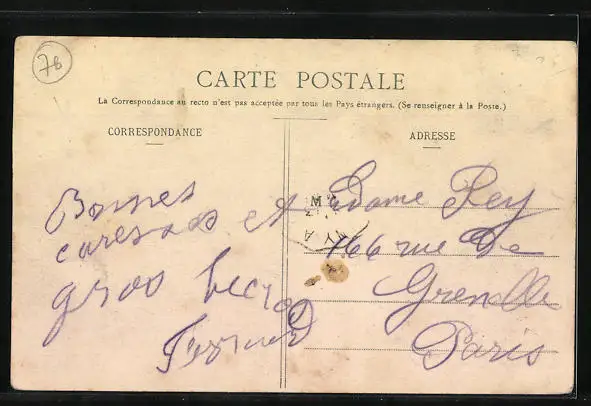 78
CARTE POSTALE
La Correspondance au recto n'est pas acceptée par tous les Pays étrangers. (Se renseigner à la Poste.)
CORRESPONDANCE
ADRESSE
Bonnes
caresses et
gros
Madame Rey
166 rue de
Grenelle
Paris